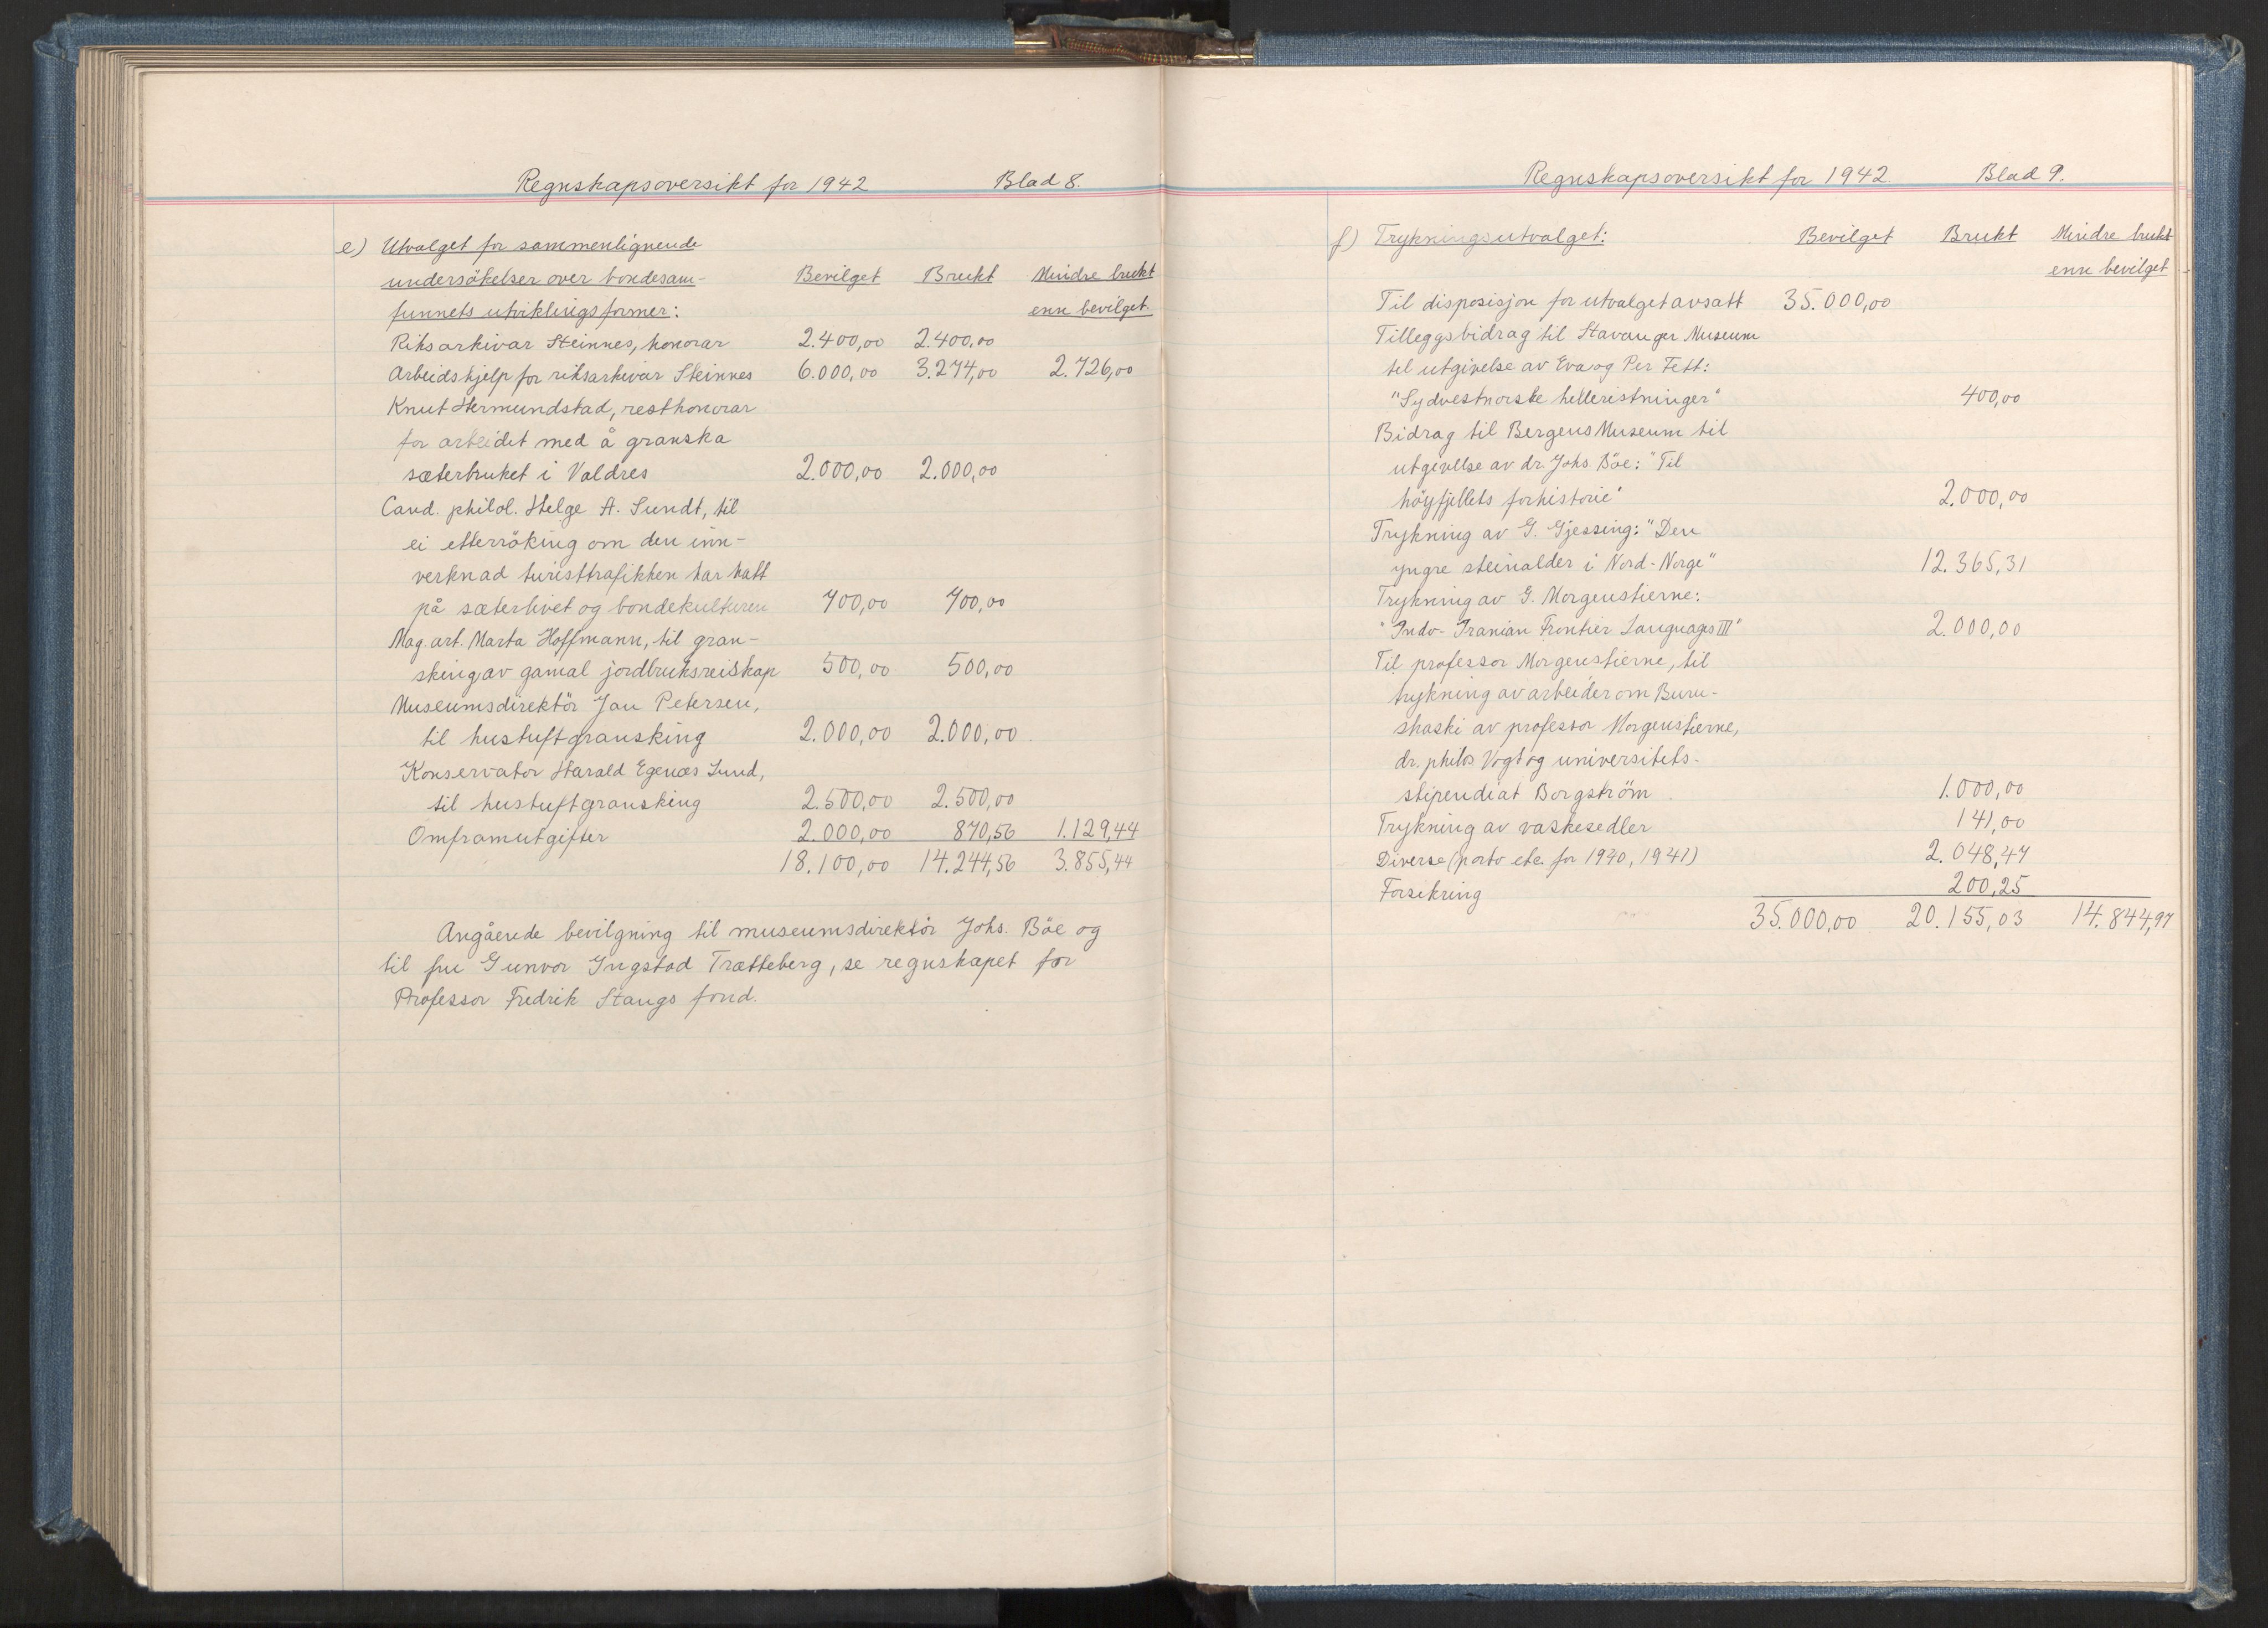 Regnskapsoversikt for 1942 Blad 8.
e) Utvalget for sammenlignende
undersökelser over bondesam- Bevilget Brukt Mindre brukt
funnets utviklingsformer: enn bevilget.
Riksarkivar Steinnes, honorar 2.400,00 2.400,00
Arbeidshjelp for riksarkivar Steinnes 6.000,00 3.274,00 2.726,00
Knut Hermundstad, resthonorar
for arbeidet med å granska
sæterbruket i Valdres 2.000,00 2.000,00
Cand. philol. Helge A. Sundt, til
ei etterröking om den inn-
verknad turisttrafikken har hatt
på sæterlivet og bondekulturen 700,00 700,00
Mag. art. Marta Hoffmann, til gran-
sking av gamal jordbruksreiskap 500,00 500,00
Museumsdirektör Jan Petersen,
til hustuftgransking 2.000,00 2.000,00
Konservator Harald Egenæs Lund,
til hustuftgransking 2.500,00 2.500,00
Omframutgifter 2.000,00 870,56 1.129,44
18.100,00 14.244,56 3.855,44
Angående bevilgning til museumsdirektör Johs. Böe og
til fru Gunvor Ingstad Trætteberg, se regnskapet for
Professor Fredrik Stangs fond.
Regnskapsoversikt for 1942. Blad 9.
f) Trykningsutvalget: Bevilget Brukt Mindre brukt
enn bevilget
Til disposisjon for utvalget avsatt 35.000,00
Tilleggsbidrag til Stavanger Museum
til utgivelse av Eva og Per Fett:
"Sydvestnorske helleristninger" 400,00
Bidrag til Bergens Museum til
utgivelse av dr. Johs. Böe: "Til
höyfjellets forhistorie" 2.000,00
Trykning av G. Gjessing: "Den
yngre steinalder i Nord-Norge" 12.365,31
Trykning av G. Morgenstierne:
"Indo-Iranian Frontier Languages III" 2.000,00
Til professor Morgenstierne, til
trykning av arbeider om Buru-
shaski av professor Morgenstierne,
dr. philos Vogt og universitets-
stipendiat Borgström 1.000,00
Trykning av vaskesedler 141,00
Diverse (porto etc. for 1940, 1941) 2.048,47
Forsikring 200,25
35.000,00 20.155,03 14.844,97